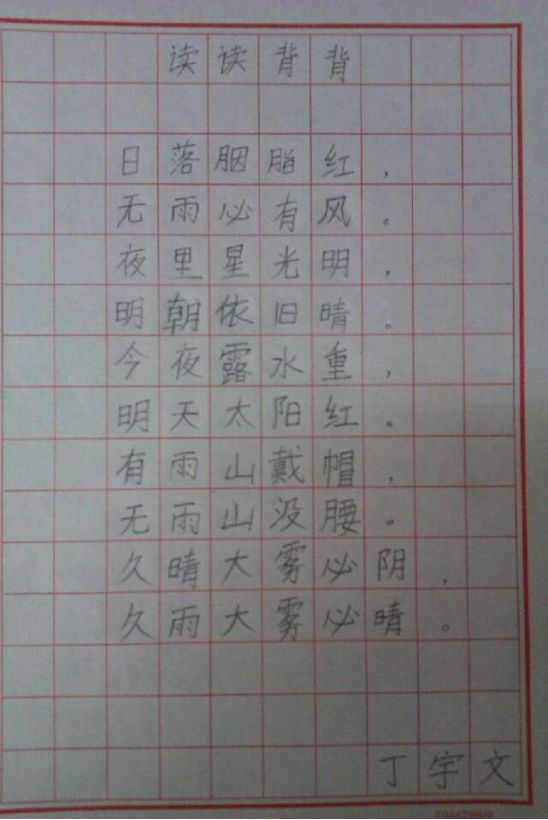 读读背背
日落胭脂红，
无雨必有风。
夜里星光明，
明朝依旧晴。
今夜露水重，
明天太阳红。
有雨山戴帽，
无雨山没腰。
久晴大雾必阴，
久雨大雾必晴。
丁宇文